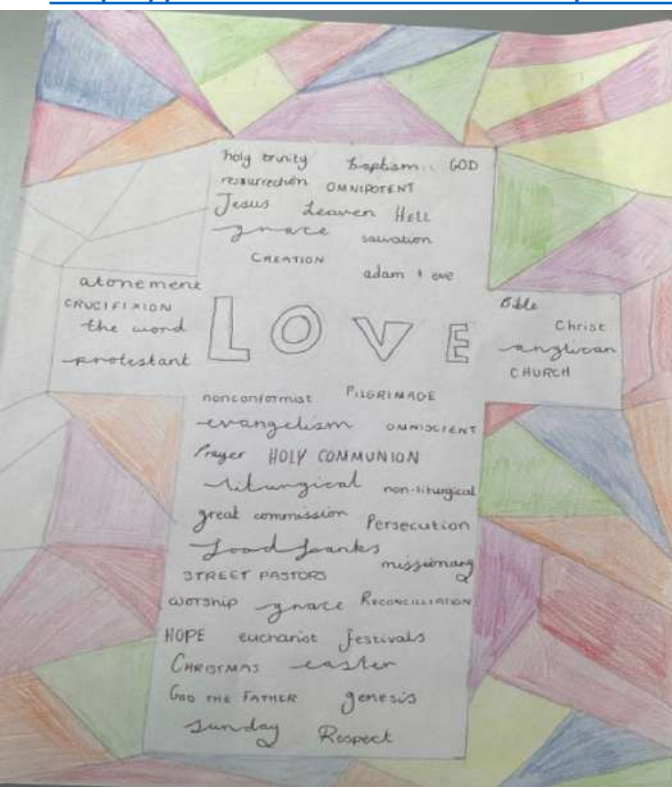 holy trinity baptism GOD
resurrection OMNIPOTENT
Jesus heaven HELL
grace salvation
CREATION
adam + eve
atonement
CRUCIFIXION
the word
protestant
LOVE
Bible
Christ
anglican
CHURCH
nonconformist PILGRIMAGE
evangelism OMNISCIENT
Prayer HOLY COMMUNION
liturgical non-liturgical
great commission Persecution
food banks missionary
STREET PASTORS
worship grace RECONCILLIATION
HOPE eucharist festivals
CHRISTMAS easter
GOD THE FATHER genesis
Sunday Respect